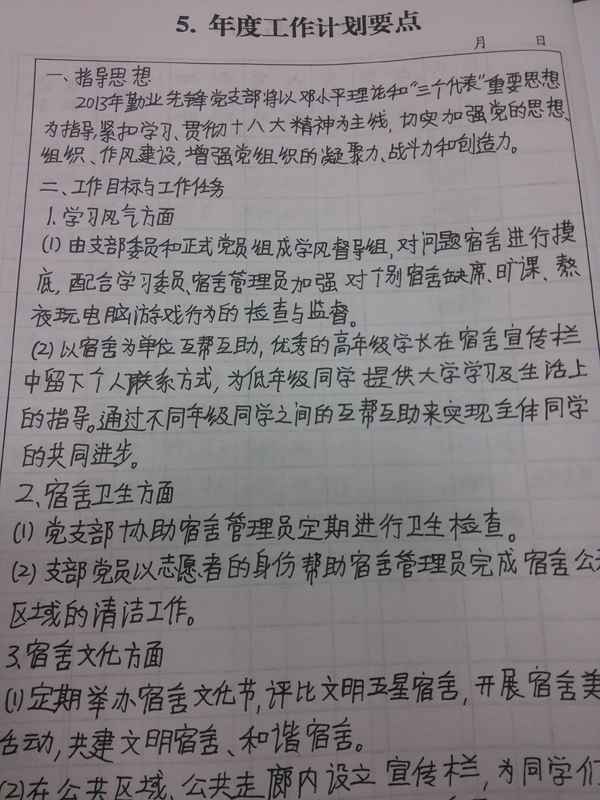 5. 年度工作计划要点
月 日
一、指导思想
2013年勤业先锋党支部将以邓小平理论和“三个代表”重要思想
为指导,紧扣学习、贯彻十八大精神为主线,切实加强党的思想、
组织、作风建设,增强党组织的凝聚力、战斗力和创造力。
二、工作目标与工作任务
1.学习风气方面
(1)由支部委员和正式党员组成学风督导组,对问题宿舍进行摸
底,配合学习委员、宿舍管理员加强对个别宿舍缺席、旷课、熬
夜玩电脑游戏行为的检查与监督。
(2)以宿舍为单位互帮互助,优秀的高年级学长在宿舍宣传栏
中留下个人联系方式,为低年级同学提供大学学习及生活上
的指导。通过不同年级同学之间的互帮互助来实现全体同学
的共同进步。
2、宿舍卫生方面
(1)党支部协助宿舍管理员定期进行卫生检查。
(2)支部党员以志愿者的身份帮助宿舍管理员完成宿舍公共
区域的清洁工作。
3、宿舍文化方面
(1)定期举办宿舍文化节,评比文明五星宿舍,开展宿舍美
活动,共建文明宿舍、和谐宿舍。
(2)在公共区域、公共走廊内设立宣传栏,为同学们